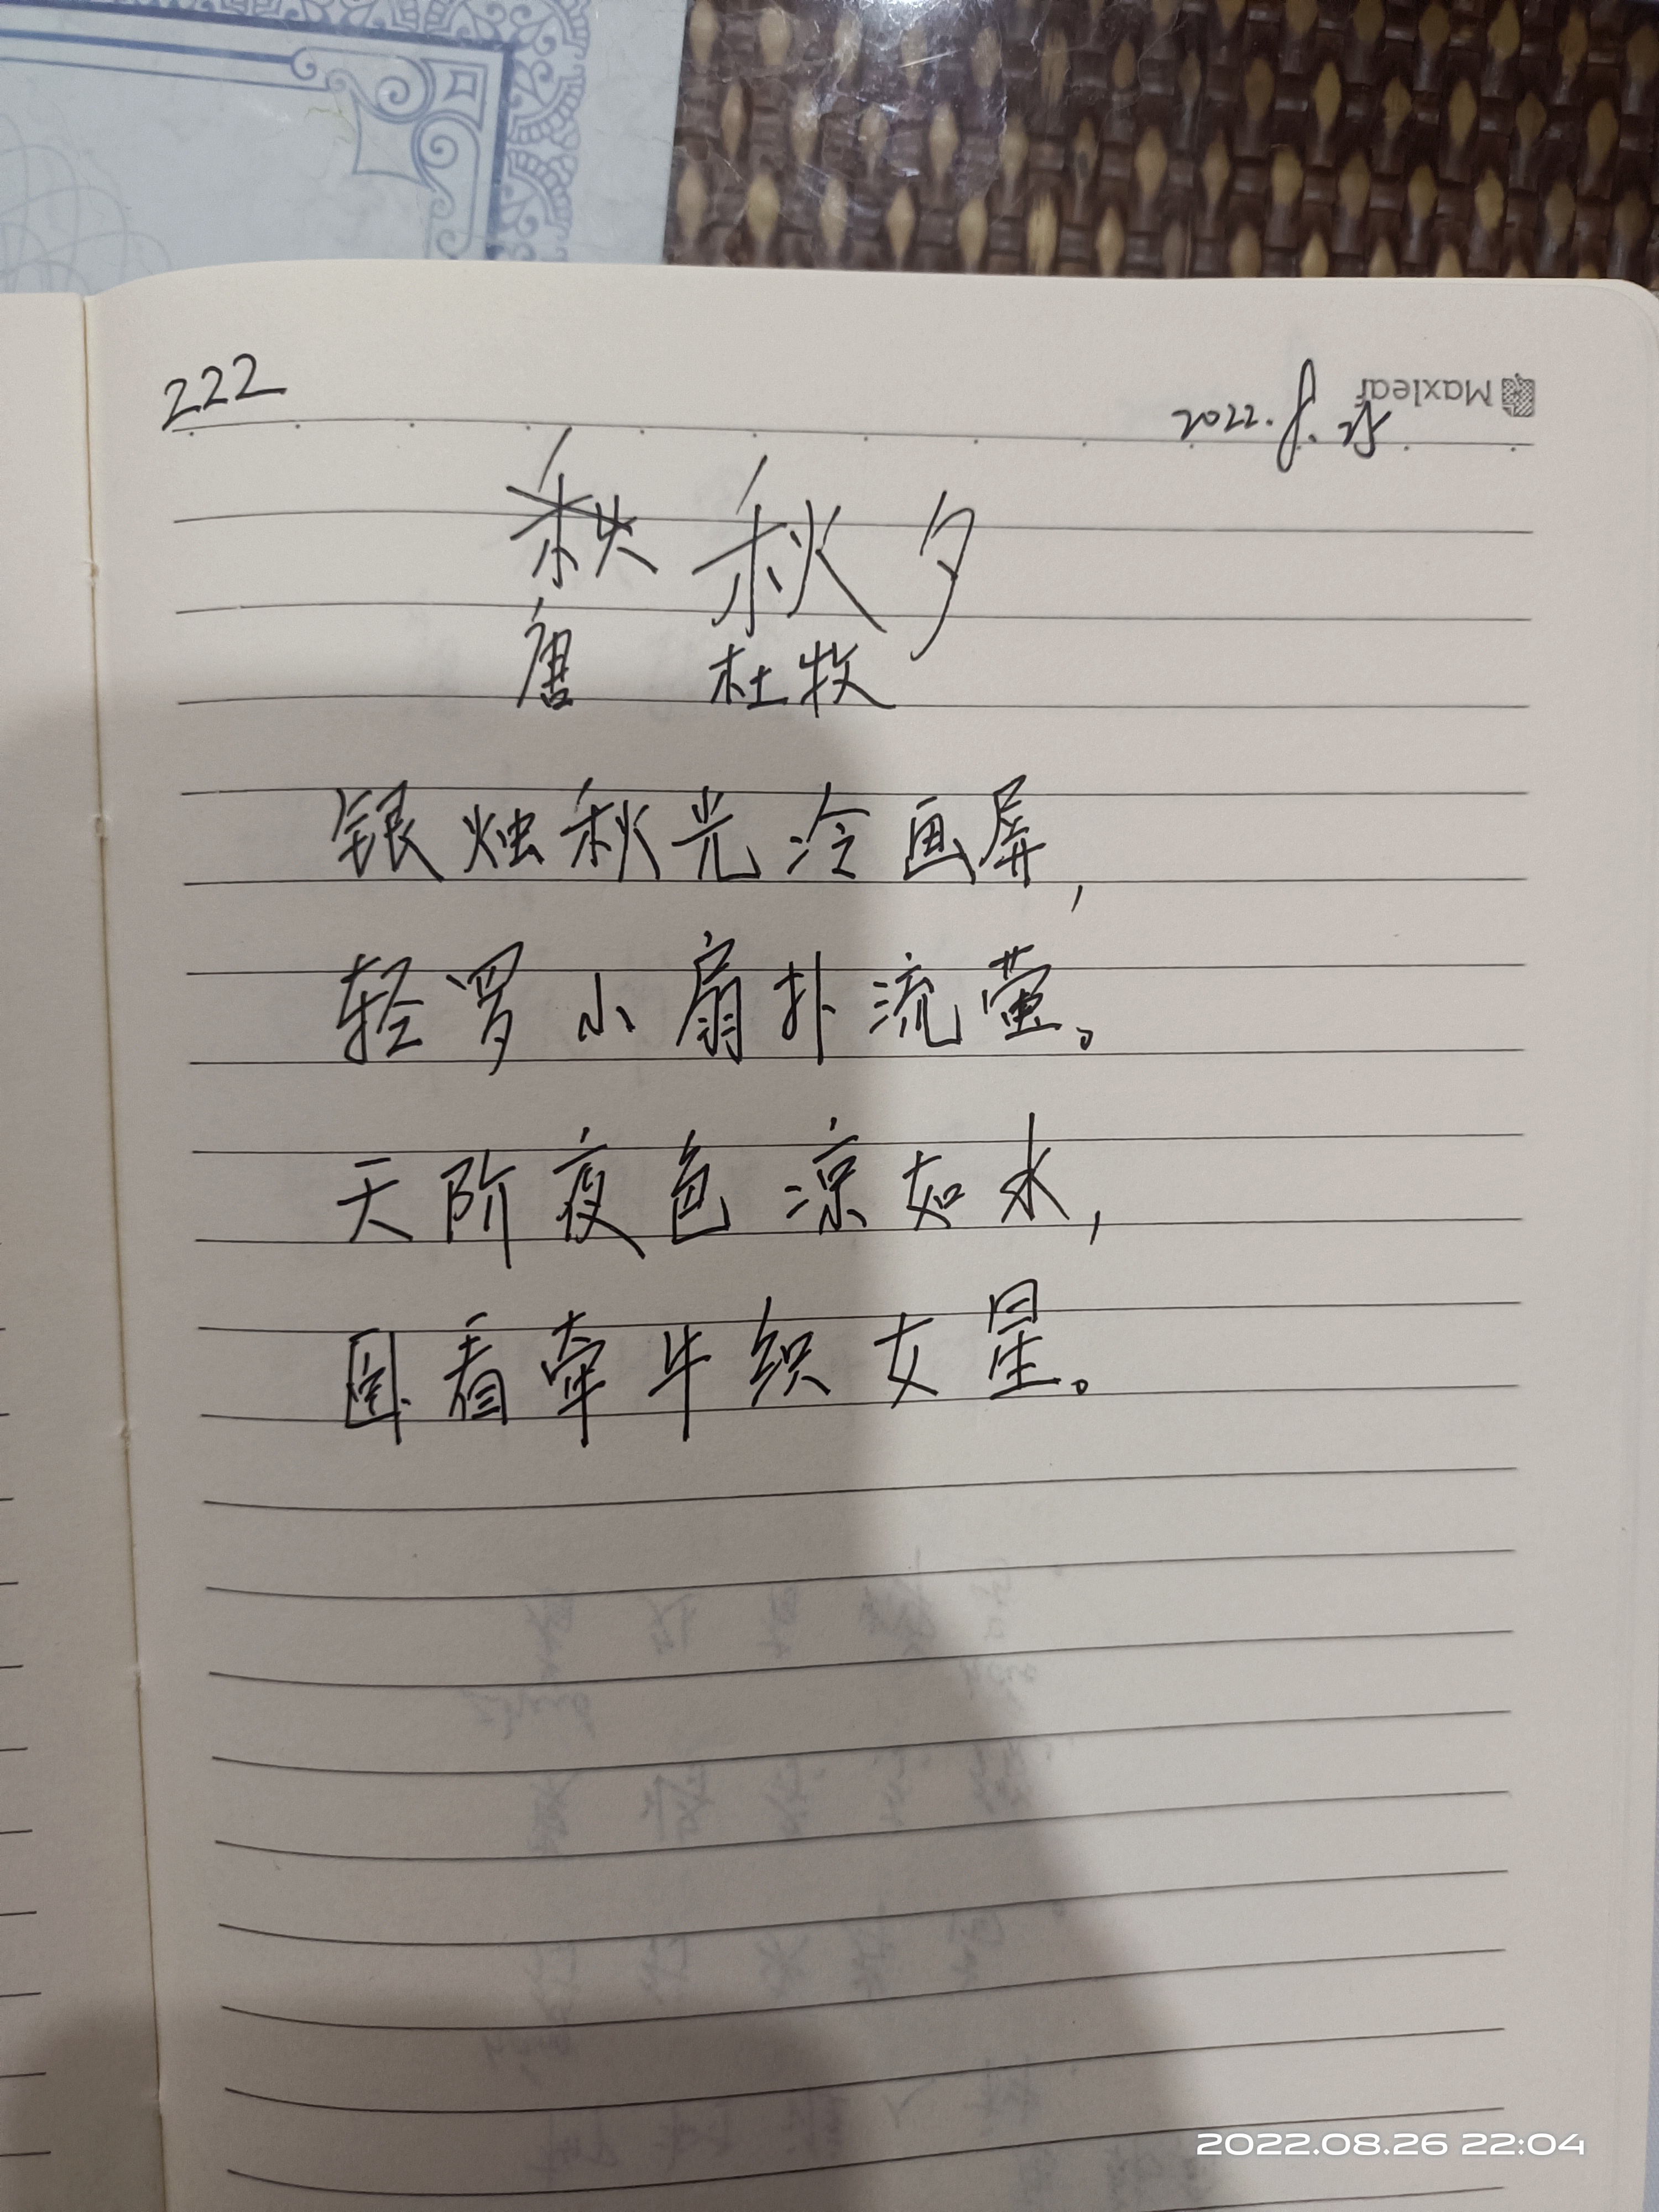 222
Maxleaf
2022.8.25
秋夕
唐 杜牧
银烛秋光冷画屏,
轻罗小扇扑流萤。
天阶夜色凉如水,
卧看牵牛织女星。
2022.08.26 22:04